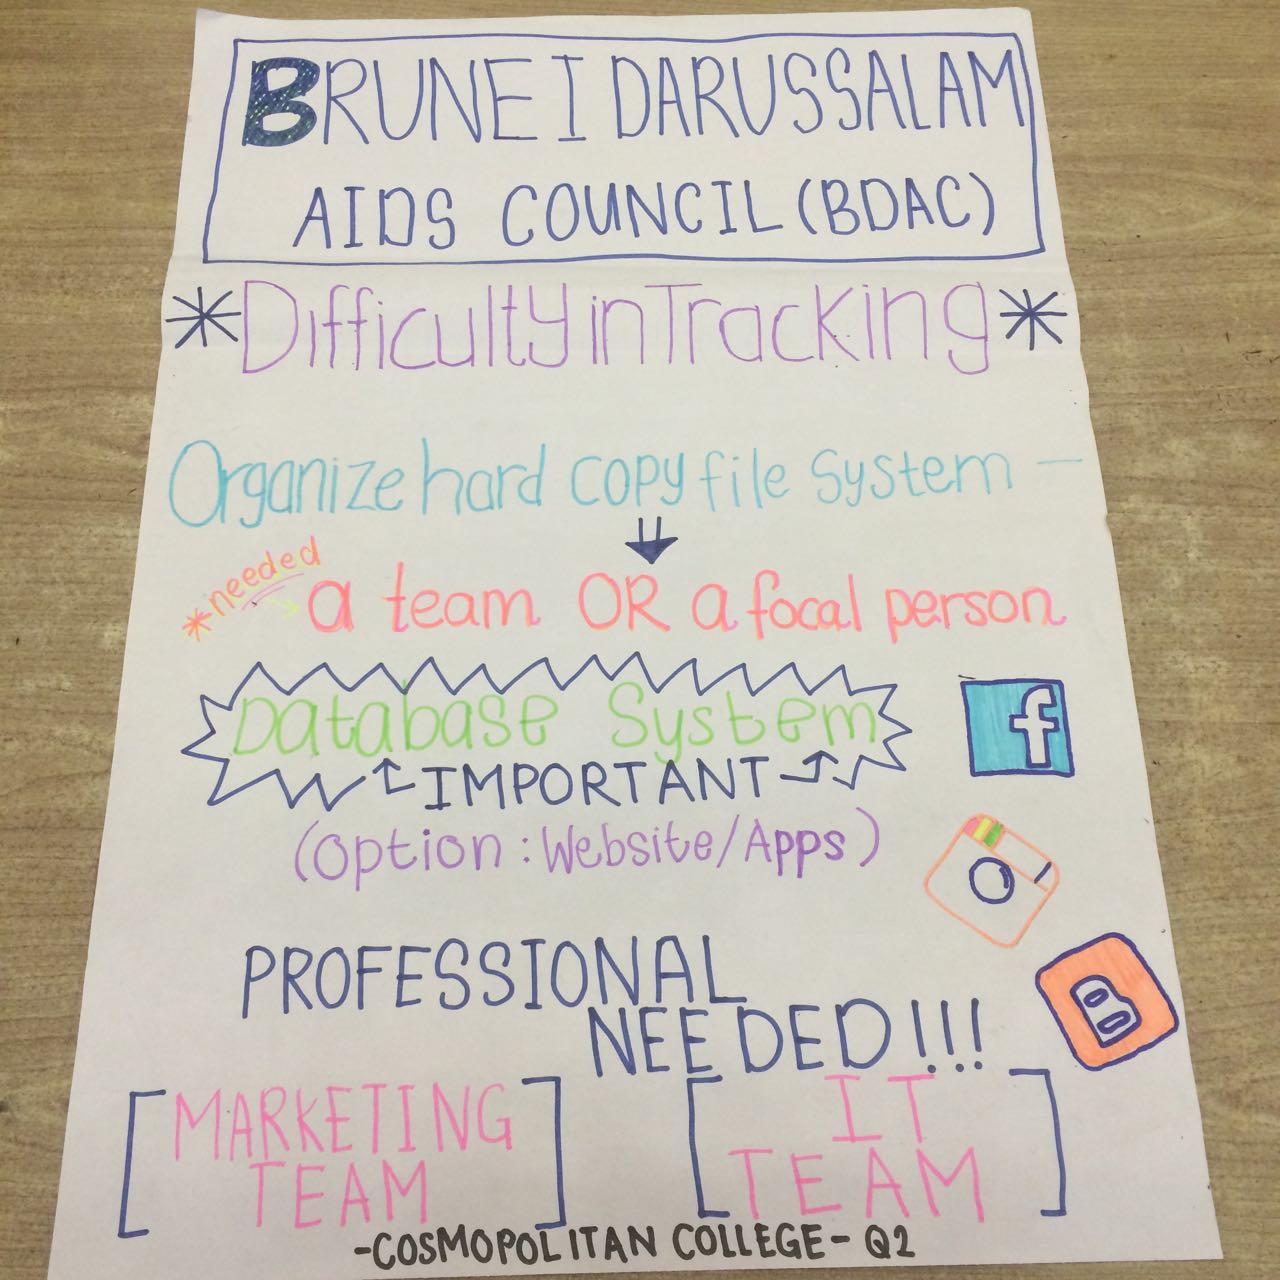 BRUNEI DARUSSALAM
AIDS COUNCIL (BDAC)
*Difficulty in Tracking*
Organize hard copy file system -
*needed
a team OR a focal person
Database System
IMPORTANT
(option : Website/Apps)
f
B
PROFESSIONAL
NEEDED!!!
[MARKETING
TEAM]
[IT
TEAM]
-COSMOPOLITAN COLLEGE- Q2